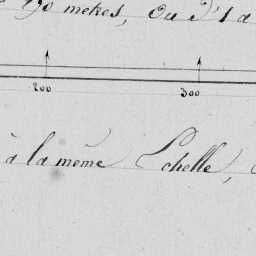 190 metres, ou d'1 a
200 300
à la même Echelle,